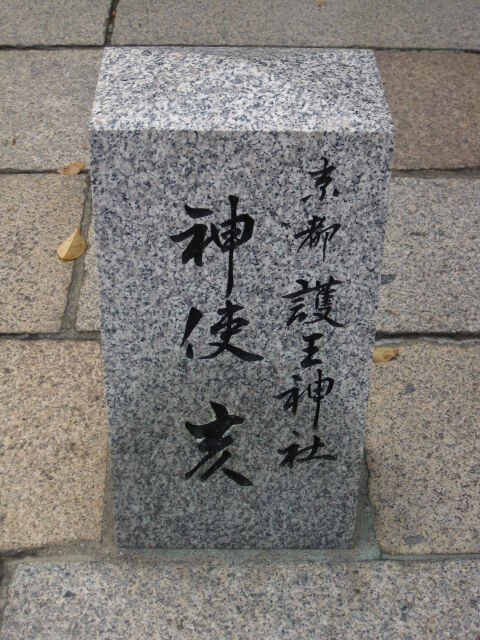 京都 護王神社
神使 亥